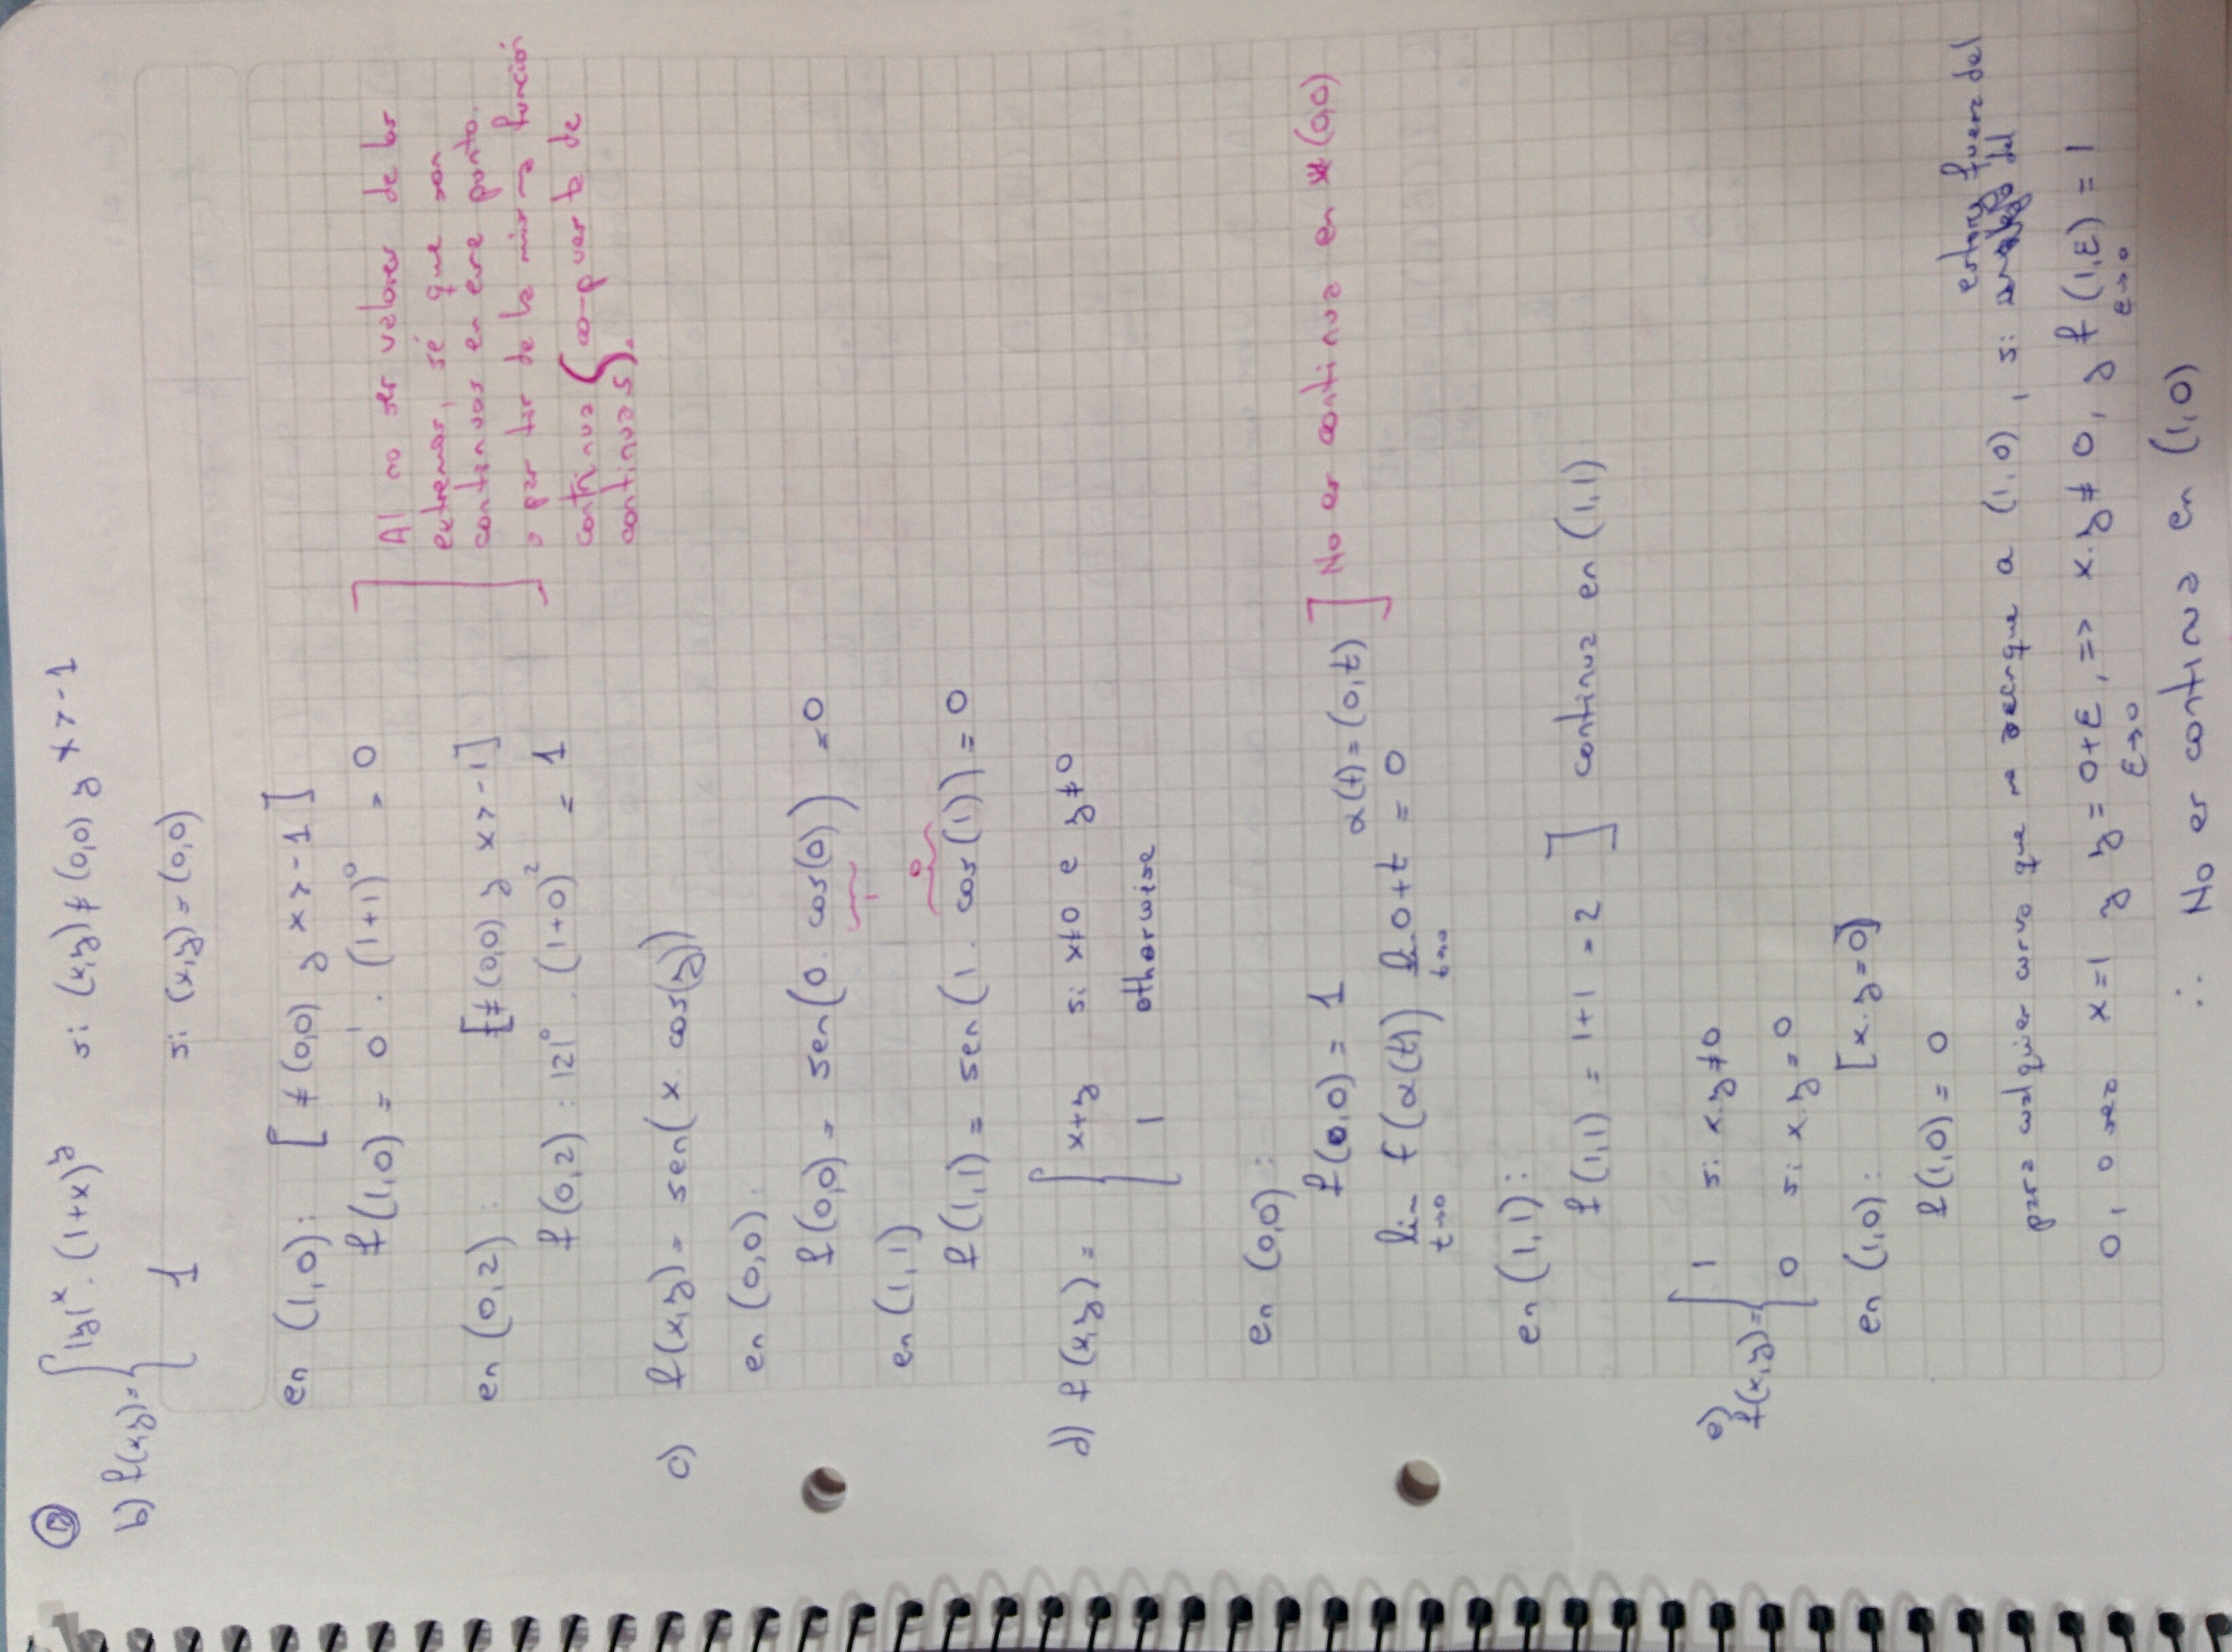 b) f(x,y) = { |y|^x . (1+x)^y si (x,y) ≠ (0,0) y x > -1
1 si (x,y) = (0,0)
en (1,0): [ ≠ (0,0) y x > -1 ]
f(1,0) = 0^1 . (1+1)^0 = 0
en (0,2): [ ≠ (0,0) y x > -1 ]
f(0,2) : |2|^0 . (1+0)^2 = 1
Al no ser valores de los
extremos, sé que son
continuas en ese punto.
a partir de la misma función
continua (compuesta de
continuas).
c) f(x,y) = sen(x. cos(y))
en (0,0):
f(0,0) = sen(0. cos(0)) = 0
1
en (1,1)
0
f(1,1) = sen(1. cos(1)) = 0
d) f(x,y) = { x+y si x≠0 e y≠0
1 otherwise
en (0,0):
f(0,0) = 1
α(t) = (0,t) ] No es continua en (0,0)
lim t→0 f(α(t)) lim t→0 0+t = 0
en (1,1):
f(1,1) = 1+1 = 2 ] continua en (1,1)
e)
f(x,y) = { 1 si x.y≠0
0 si x.y=0
en (1,0): [x.y=0]
f(1,0) = 0
para cualquier curva que se acerque a (1,0), si estoy fuera del
0, o sea x=1 y y = 0+ε, ε→0 => x.y ≠ 0, y f(1,ε) ε→0 = 1
∴ No es continua en (1,0)